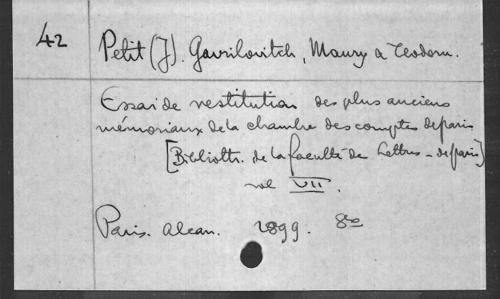 42
Petit (J). Gavrilovitch, Maury a Teodoru.
Essai de restitution des plus anciens
mémoriaux de la chambre des comptes de paris
[Biblioth. de la faculté de Lettres - de paris]
vol VII.
Paris. Alcan. 1899. 8o